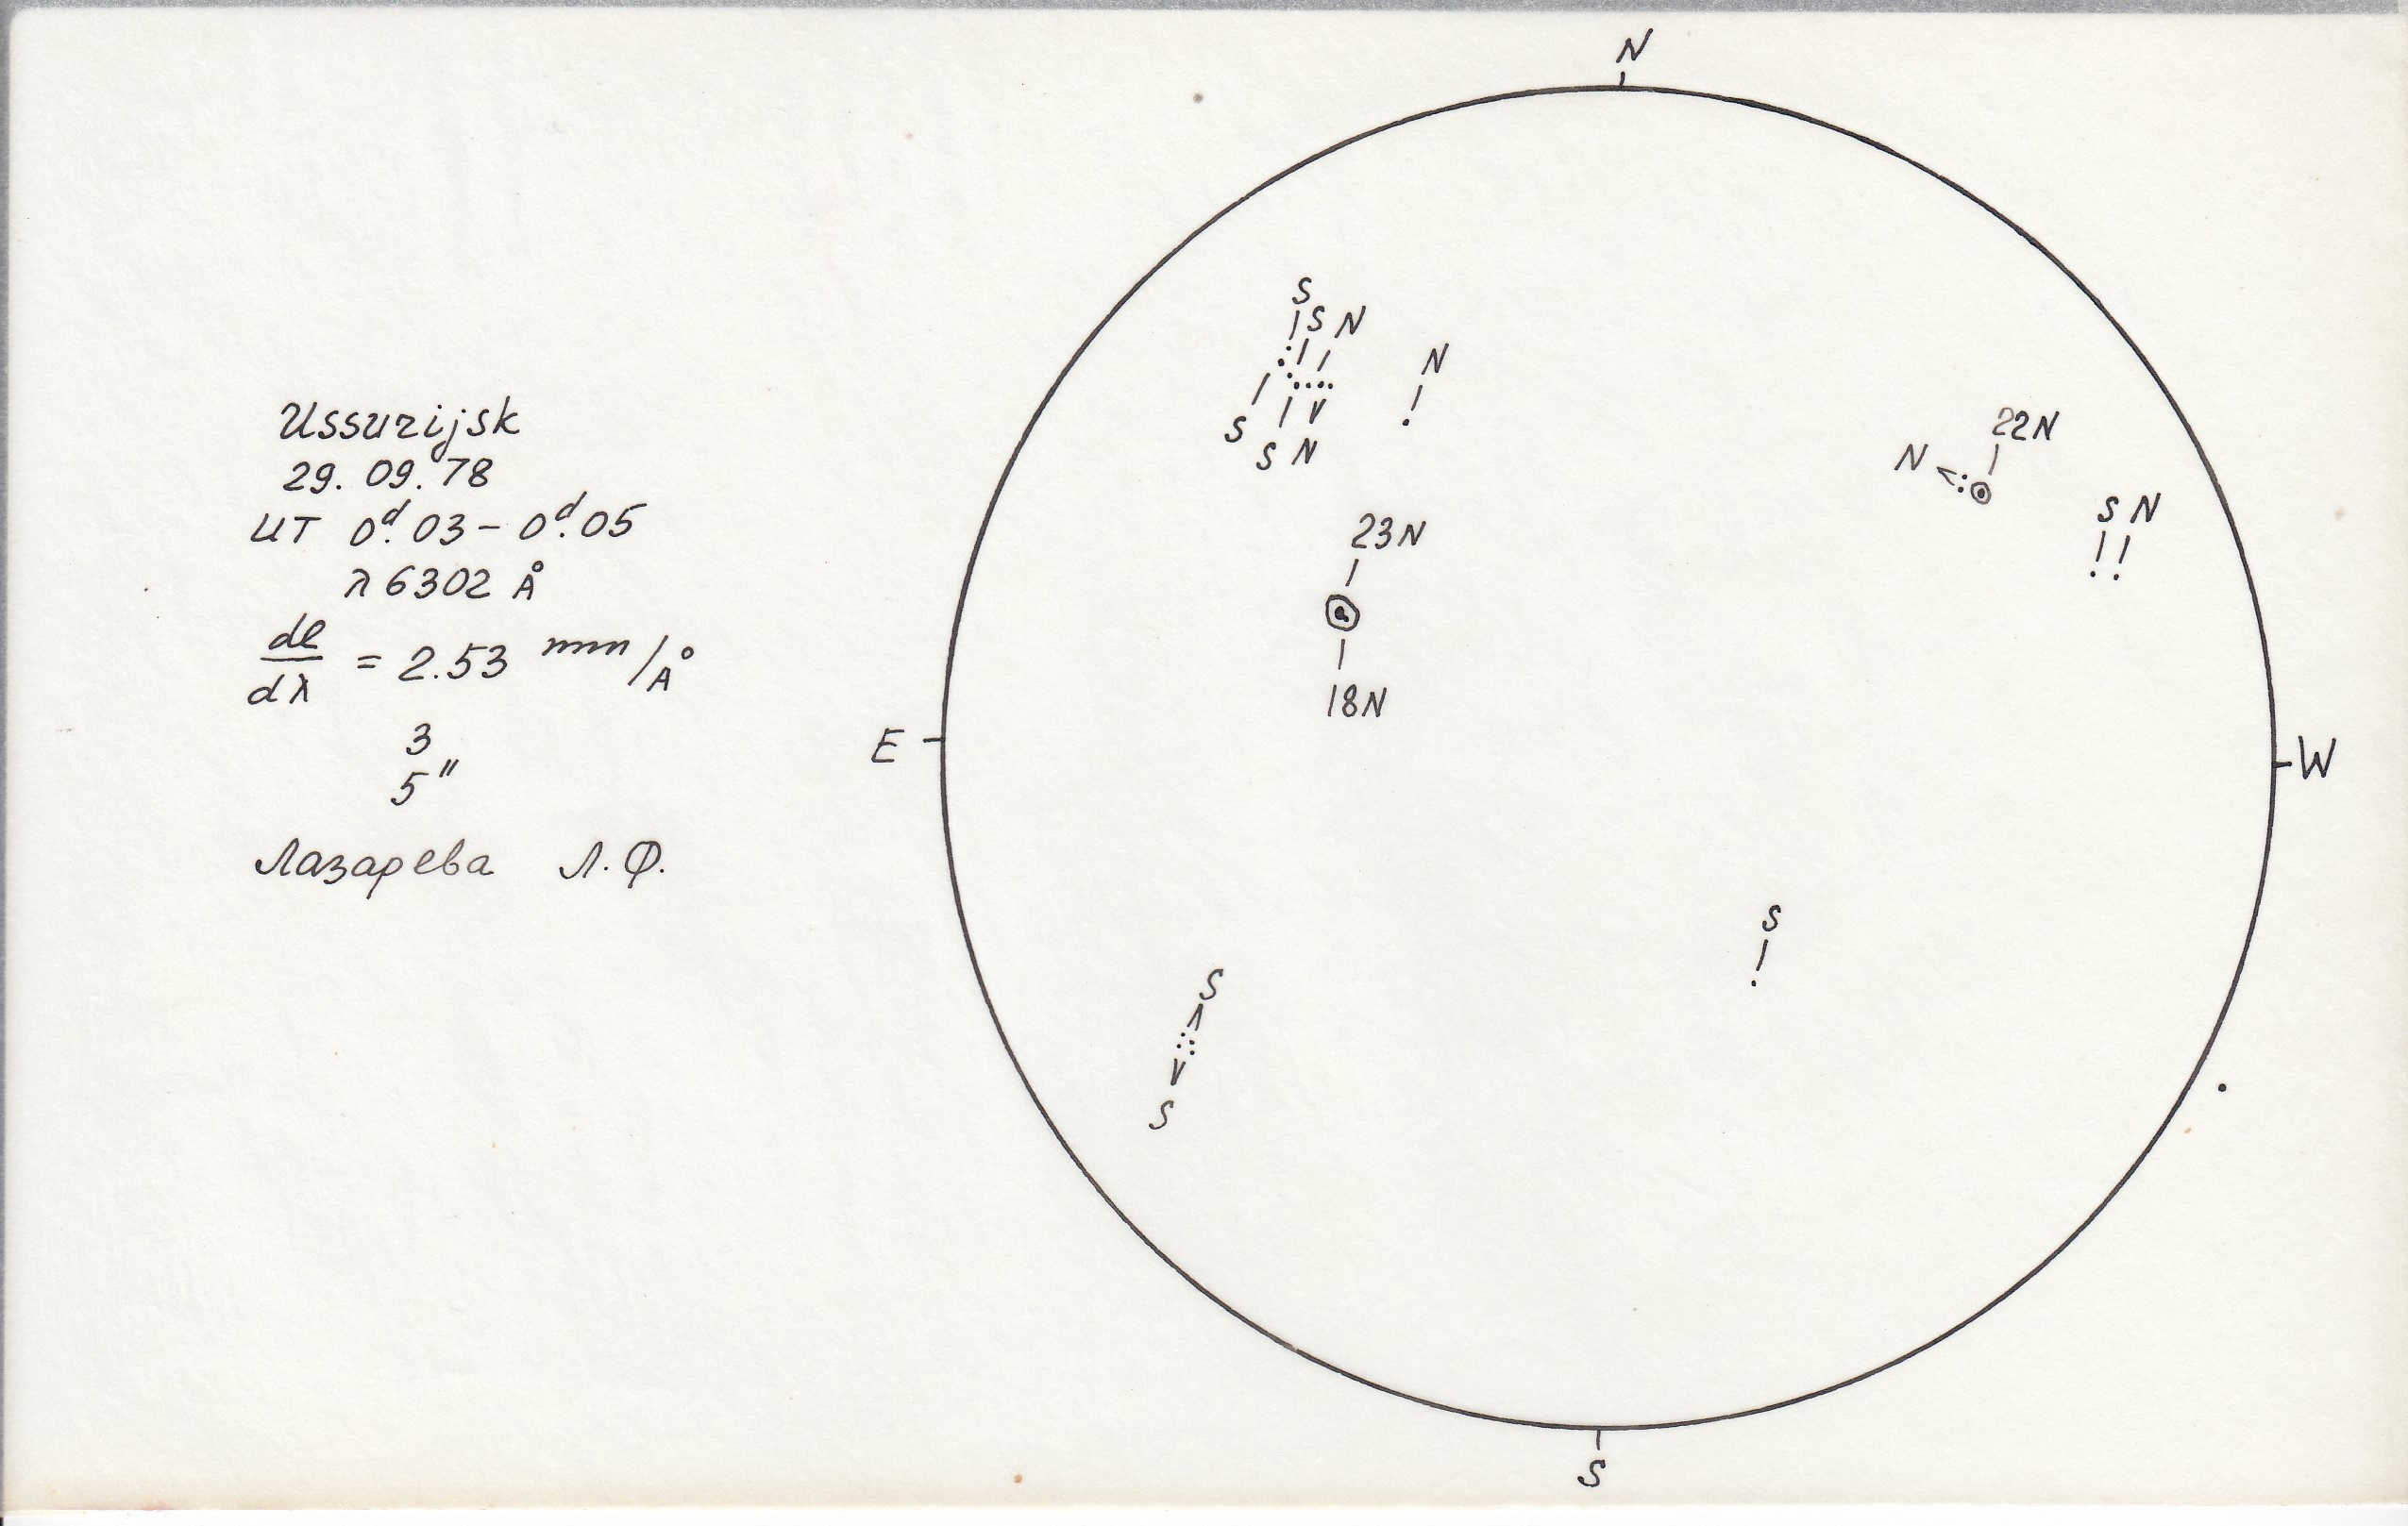 Ussurijsk
29. 09. 78
UT 0ᵈ.03 – 0ᵈ.05
λ 6302 Å
dl/dλ = 2.53 mm/Å
3
5"
Лазарева Л.Ф.
N
S
S N
N
S
V
S N
23N
18N
22N
N
S N
E
W
S
S
S
S